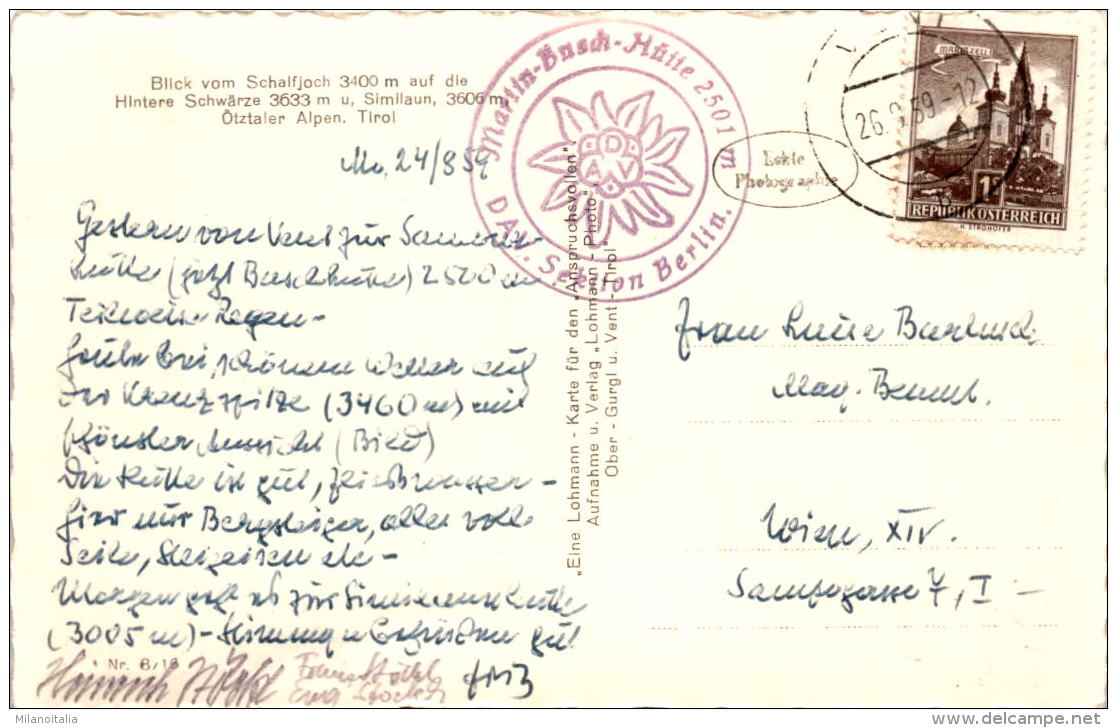 Blick vom Schalfjoch 3400 m auf die
Hintere Schwärze 3633 m u, Similaun, 3606 m,
Ötztaler Alpen. Tirol
Mo, 24/8 59
Gestern von Vent zur Samoar-
hütte (jetzt Buschhütte) 2500 m
Teilweise Regen -
Heute bei schönem Wetter auf
der Kreuzspitze (3460 m) mit
schönster Aussicht (Bild)
Die Hütte ist gut, Fließwasser -
hier nur Bergsteiger, alles volle
Seile, Steigeisen etc -
Morgen geht es zur Similaunhütte
(3005 m) - Stimmung u Befinden gut
Nr. 6/16
Heinrich
Fritz
Martin-Busch-Hütte 2501 m
DAV
DAV. Sektion Berlin.
„Eine Lohmann - Karte für den „Anspruchsvollen"
Aufnahme u. Verlag „Lohmann - Photo",
Ober - Gurgl u. Vent - Tirol"
Echte
Photographie
26. 59-12
MARIAZELL
1S
REPUBLIK ÖSTERREICH
H. STROHOFER
Frau Luise
Wien, XIV.
7, I -
Milanoitalia
delcampe.net